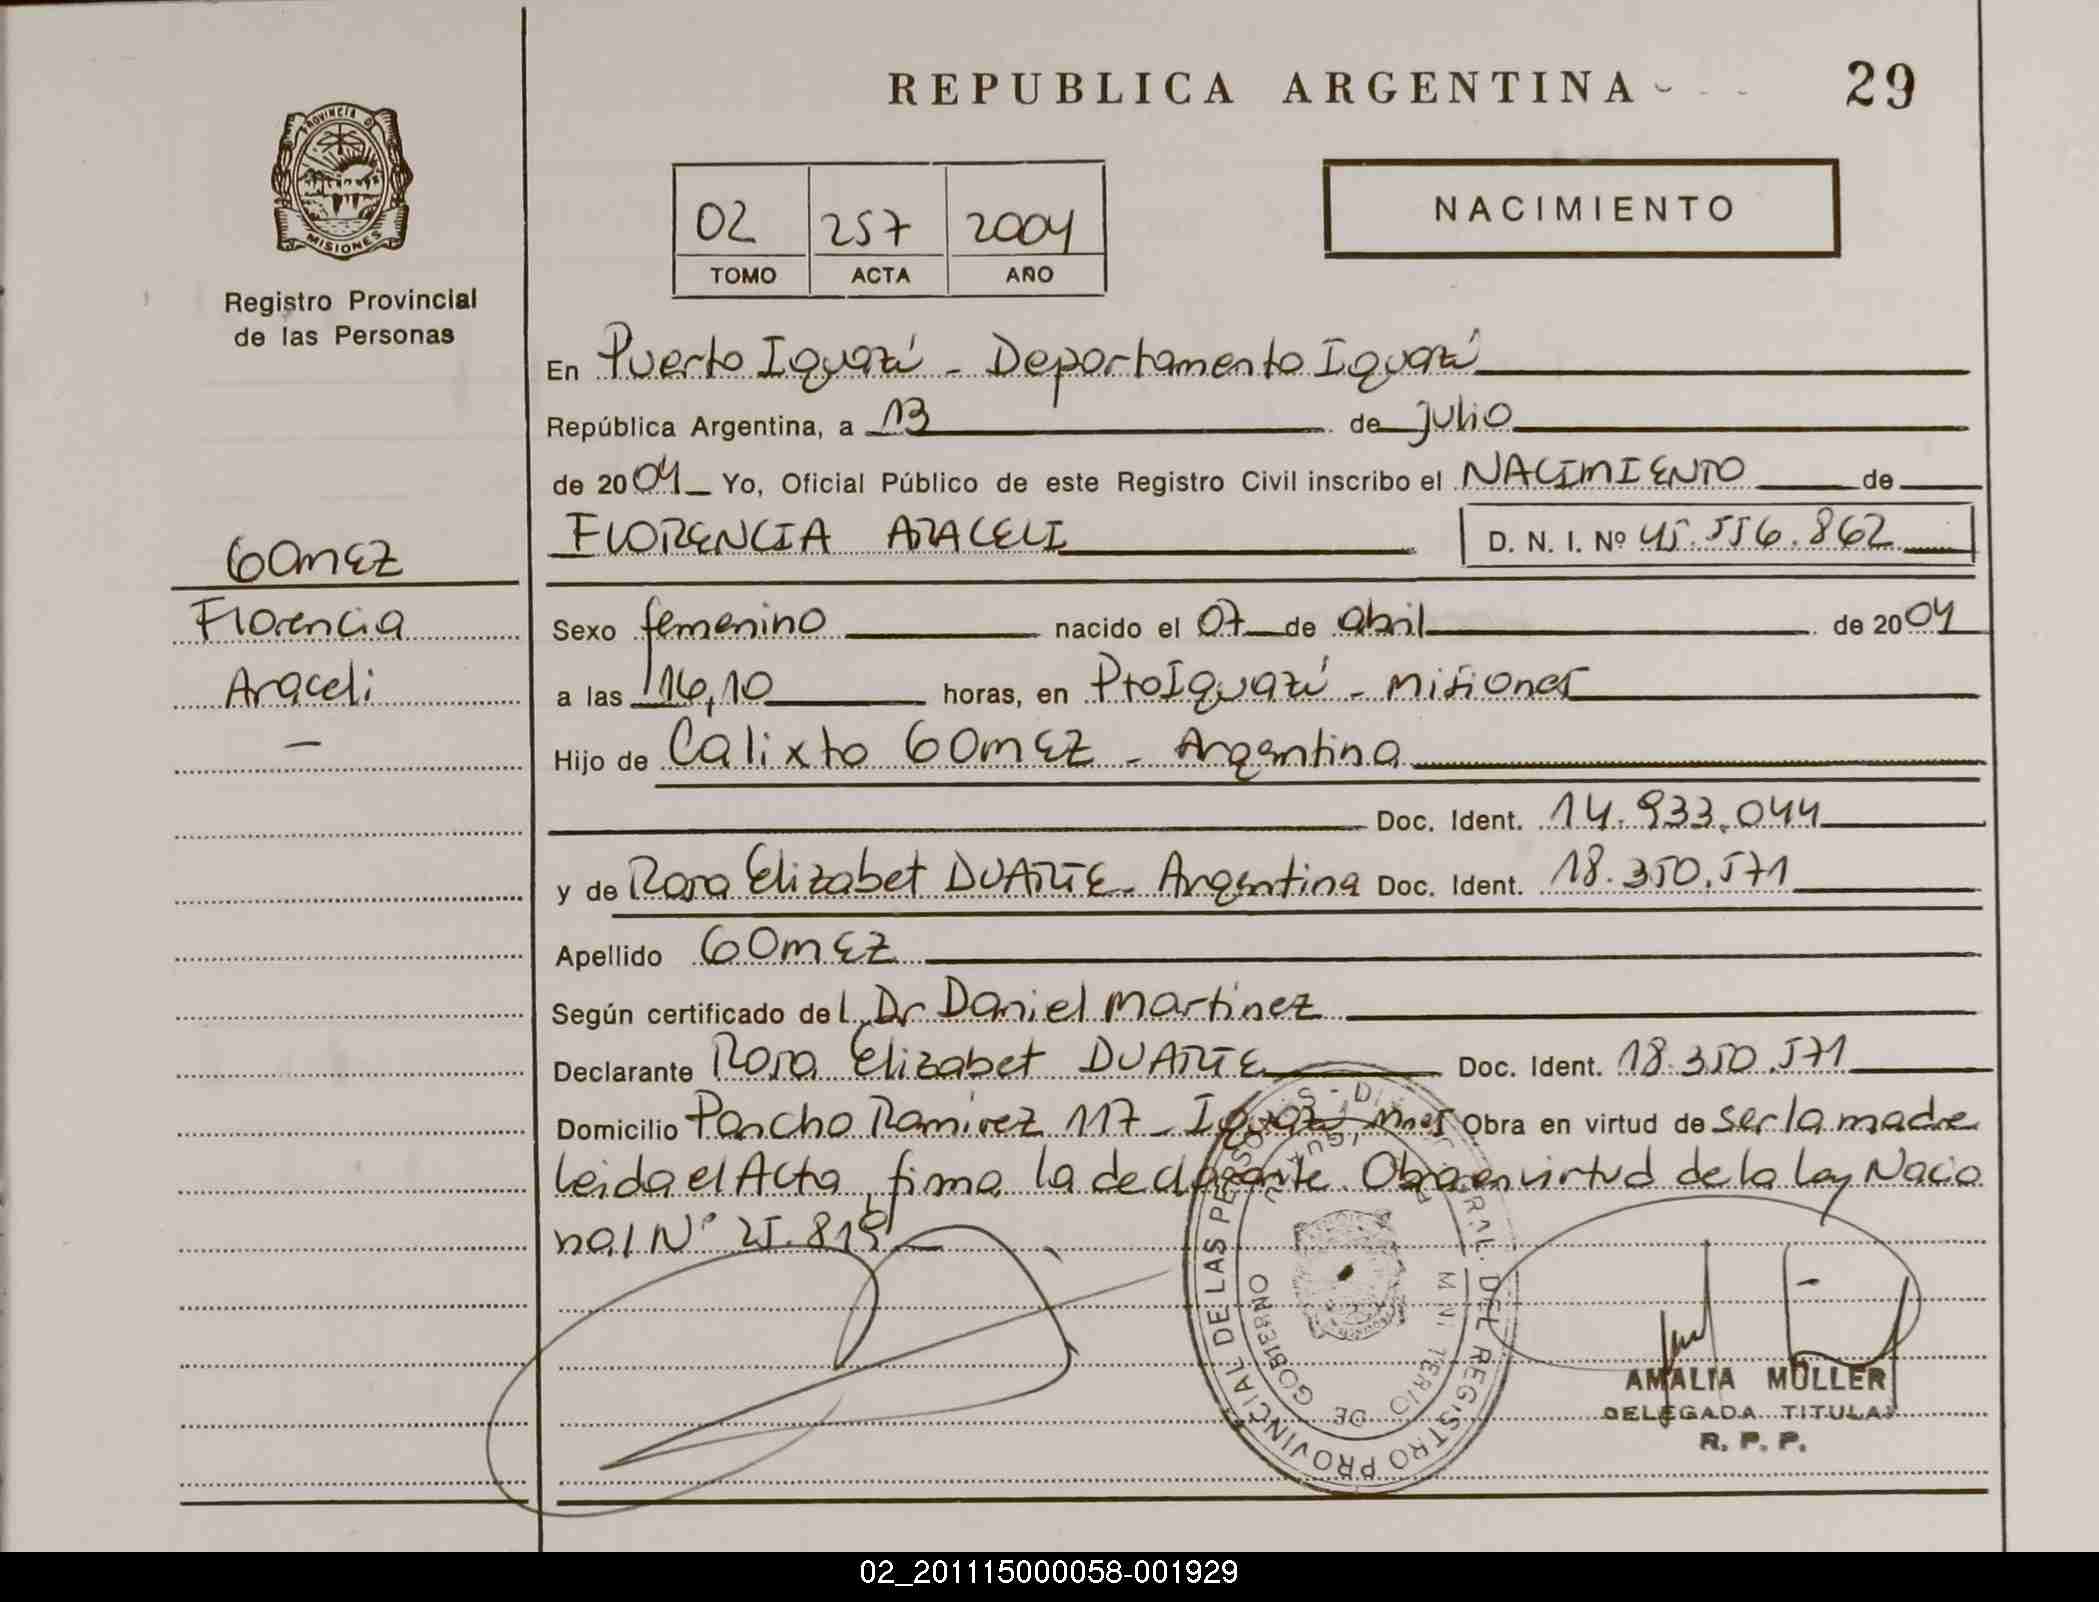 REPUBLICA ARGENTINA
29
PROVINCIA DE
MISIONES
Registro Provincial
de las Personas
02 257 2004
TOMO ACTA AÑO
NACIMIENTO
En Puerto Iguazú - Departamento Iguazú
República Argentina, a 13 de julio
de 2004 Yo, Oficial Público de este Registro Civil inscribo el NACIMIENTO de
FLORENCIA ARACELI D. N. I. Nº 45.556.862
GOMEZ
Florencia
Araceli
-
Sexo femenino nacido el 07 de abril de 2004
a las 16,10 horas, en Pto Iguazú - Misiones
Hijo de Calixto GOMEZ - Argentina
Doc. Ident. 14.933.044
y de Rosa Elizabet DUARTE - Argentina Doc. Ident. 18.350.571
Apellido GOMEZ
Según certificado del Dr Daniel Martinez
Declarante Rosa Elizabet DUARTE Doc. Ident. 18.350.571
Domicilio Pancho Ramirez 117 - Iguazú Mnes Obra en virtud de ser la madre
leida el Acta, firma la declarante. Obra en virtud de la ley Nacio
nal Nº 25.819
REGISTRO PROVINCIAL DE LAS PERSONAS
DE GOBIERNO
AMALIA MULLER
DELEGADA TITULAR
R. P. P.
02_201115000058-001929